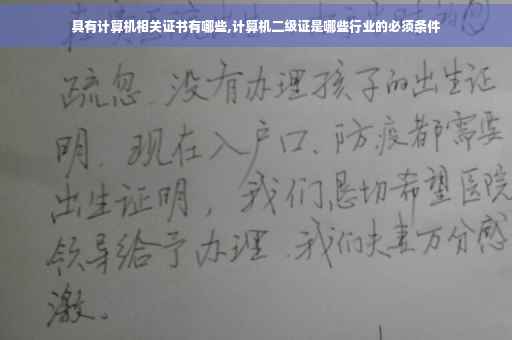 具有计算机相关证书有哪些,计算机二级证是哪些行业的必须条件
疏忽、没有办理孩子的出生证
明、现在入户口、防疫都需要
出生证明，我们恳切希望医院
领导给予办理、我们夫妻万分感
激。